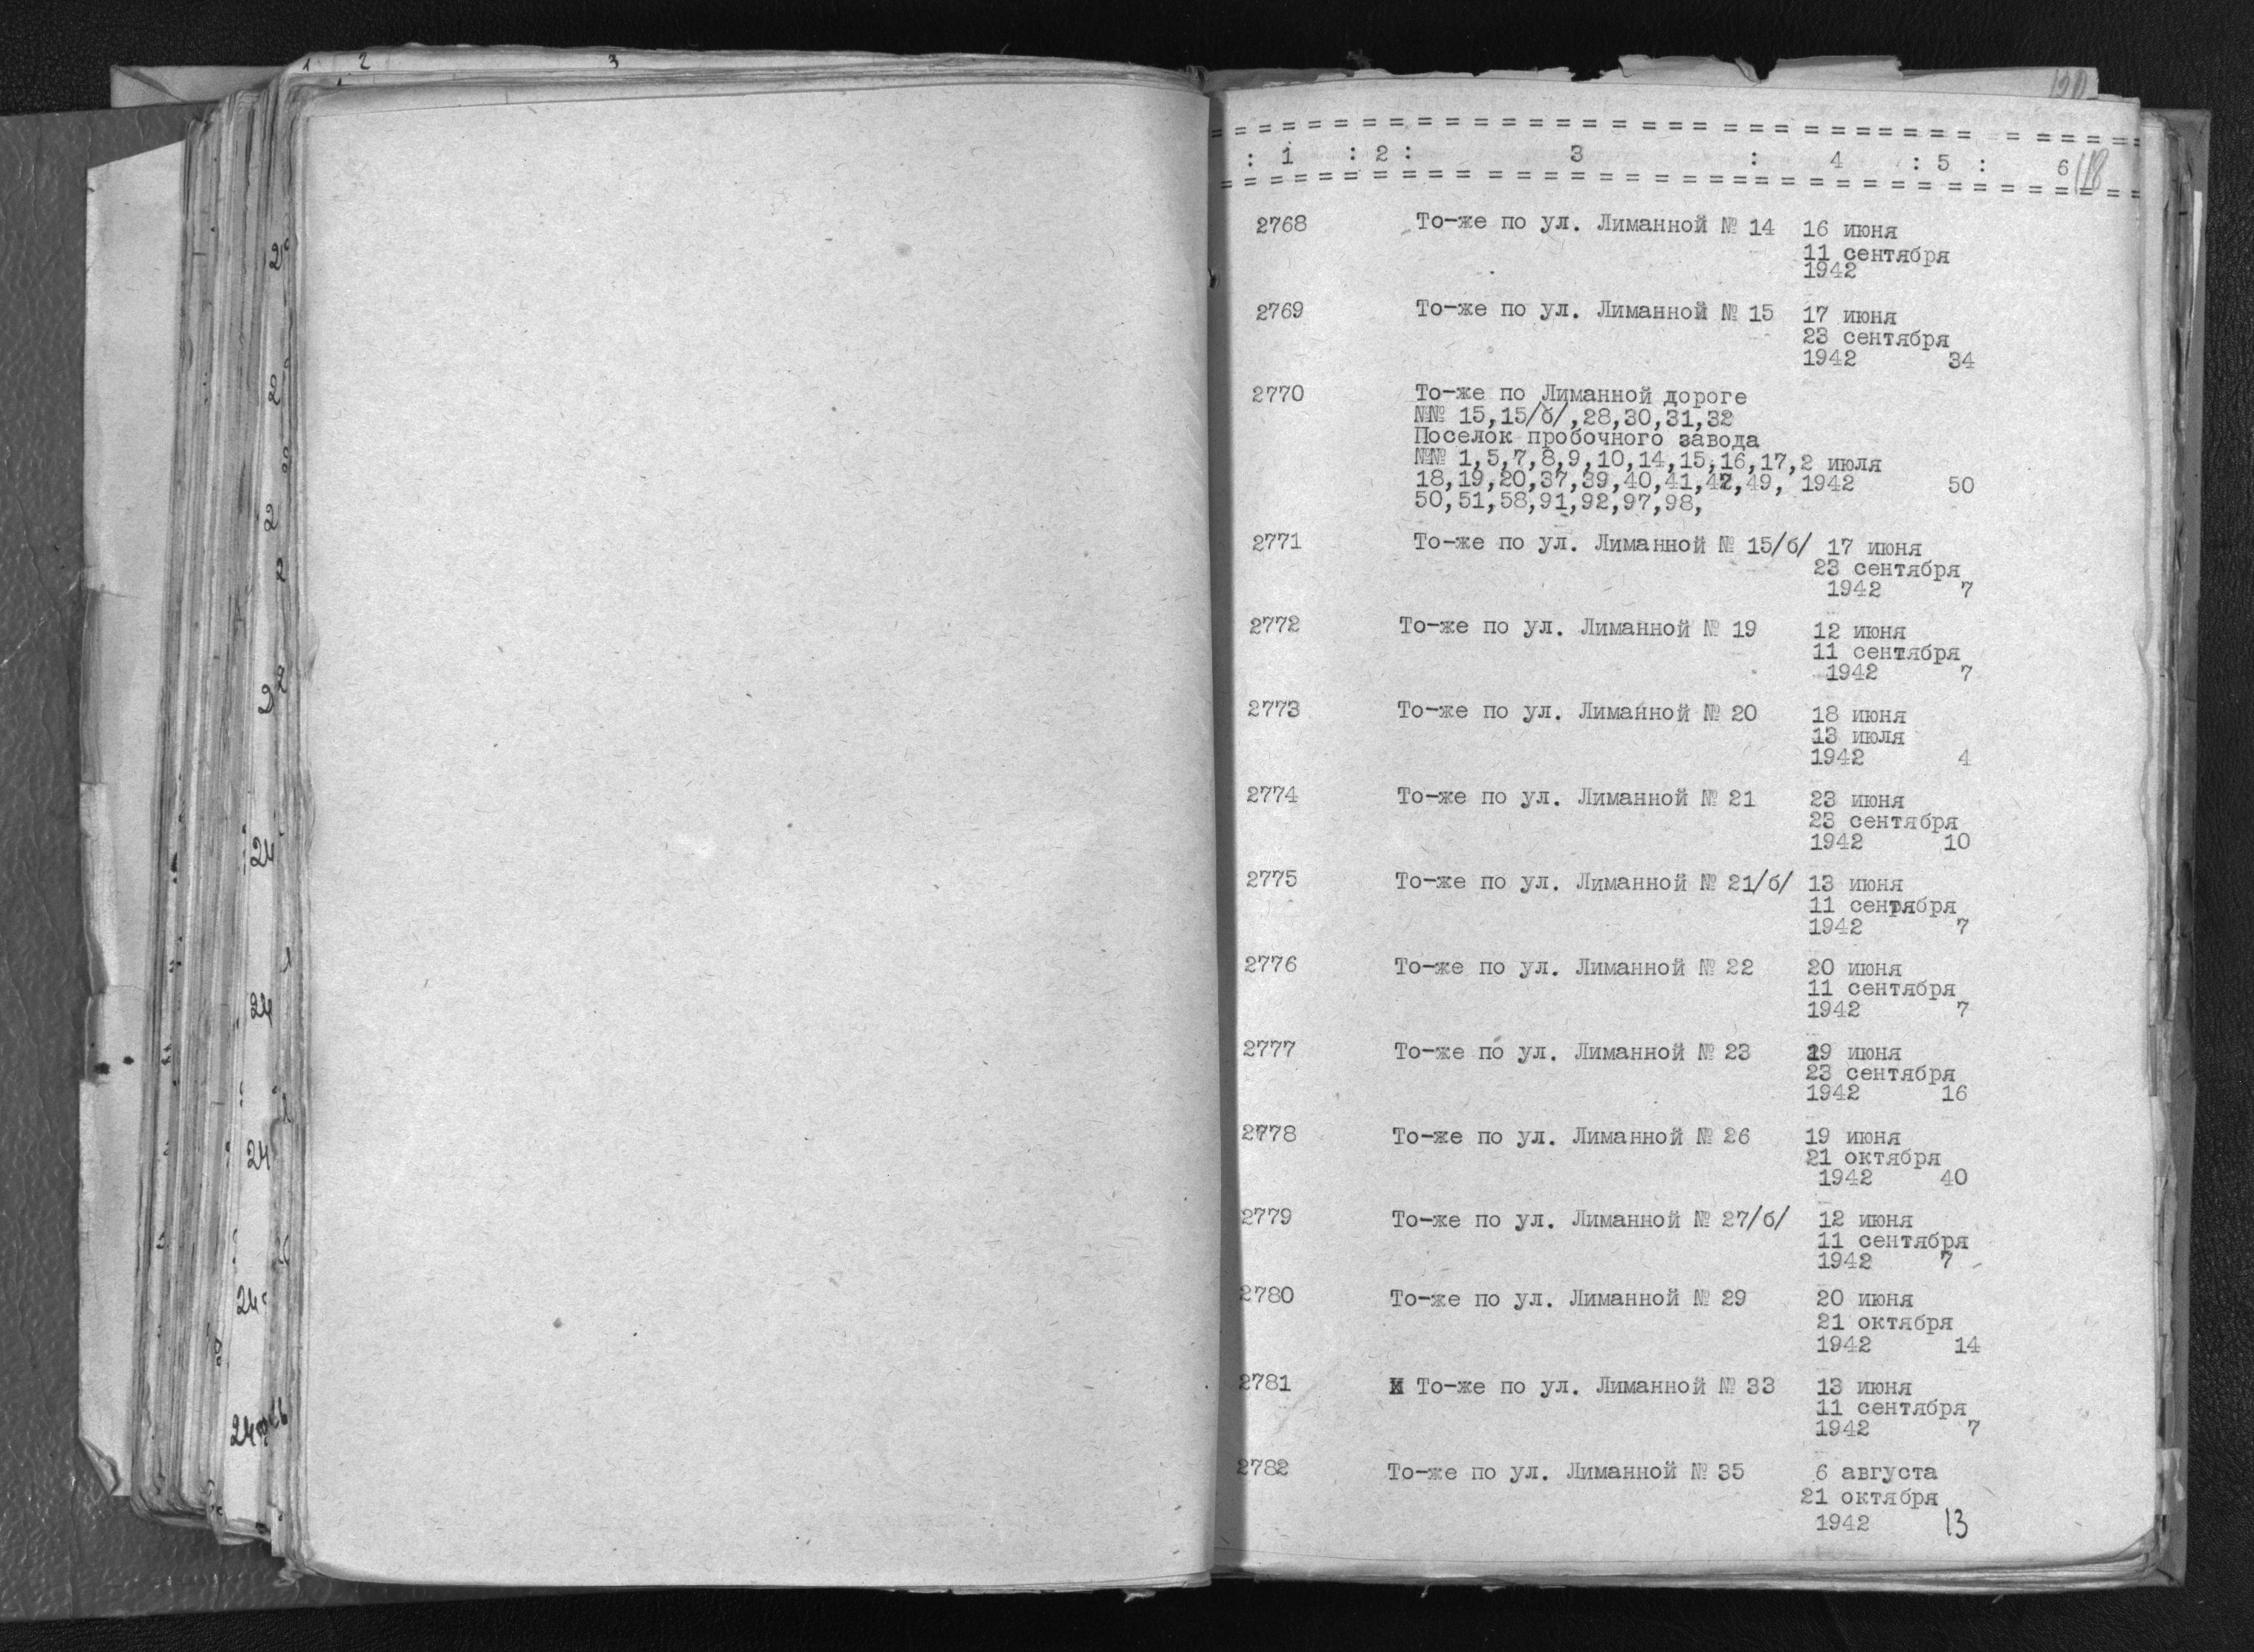 1 2 3
120
: 1 : 2 : 3 : 4 : 5 : 6
118
2768 То-же по ул. Лиманной № 14 16 июня
11 сентября
1942
2769 То-же по ул. Лиманной № 15 17 июня
23 сентября
1942 34
2770 То-же по Лиманной дороге
№№ 15,15/б/,28,30,31,32
Поселок пробочного завода
№№ 1,5,7,8,9,10,14,15,16,17,2 июля
18,19,20,37,39,40,41,42,49, 1942 50
50,51,58,91,92,97,98,
2771 То-же по ул. Лиманной № 15/б/ 17 июня
23 сентября
1942 7
2772 То-же по ул. Лиманной № 19 12 июня
11 сентября
1942 7
2773 То-же по ул. Лиманной № 20 18 июня
13 июля
1942 4
2774 То-же по ул. Лиманной № 21 23 июня
23 сентября
1942 10
2775 То-же по ул. Лиманной № 21/б/ 13 июня
11 сентября
1942 7
2776 То-же по ул. Лиманной № 22 20 июня
11 сентября
1942 7
2777 То-же по ул. Лиманной № 23 19 июня
23 сентября
1942 16
2778 То-же по ул. Лиманной № 26 19 июня
21 октября
1942 40
2779 То-же по ул. Лиманной № 27/б/ 12 июня
11 сентября
1942 7
2780 То-же по ул. Лиманной № 29 20 июня
21 октября
1942 14
2781 То-же по ул. Лиманной № 33 13 июня
11 сентября
1942 7
2782 То-же по ул. Лиманной № 35 6 августа
21 октября
1942 13